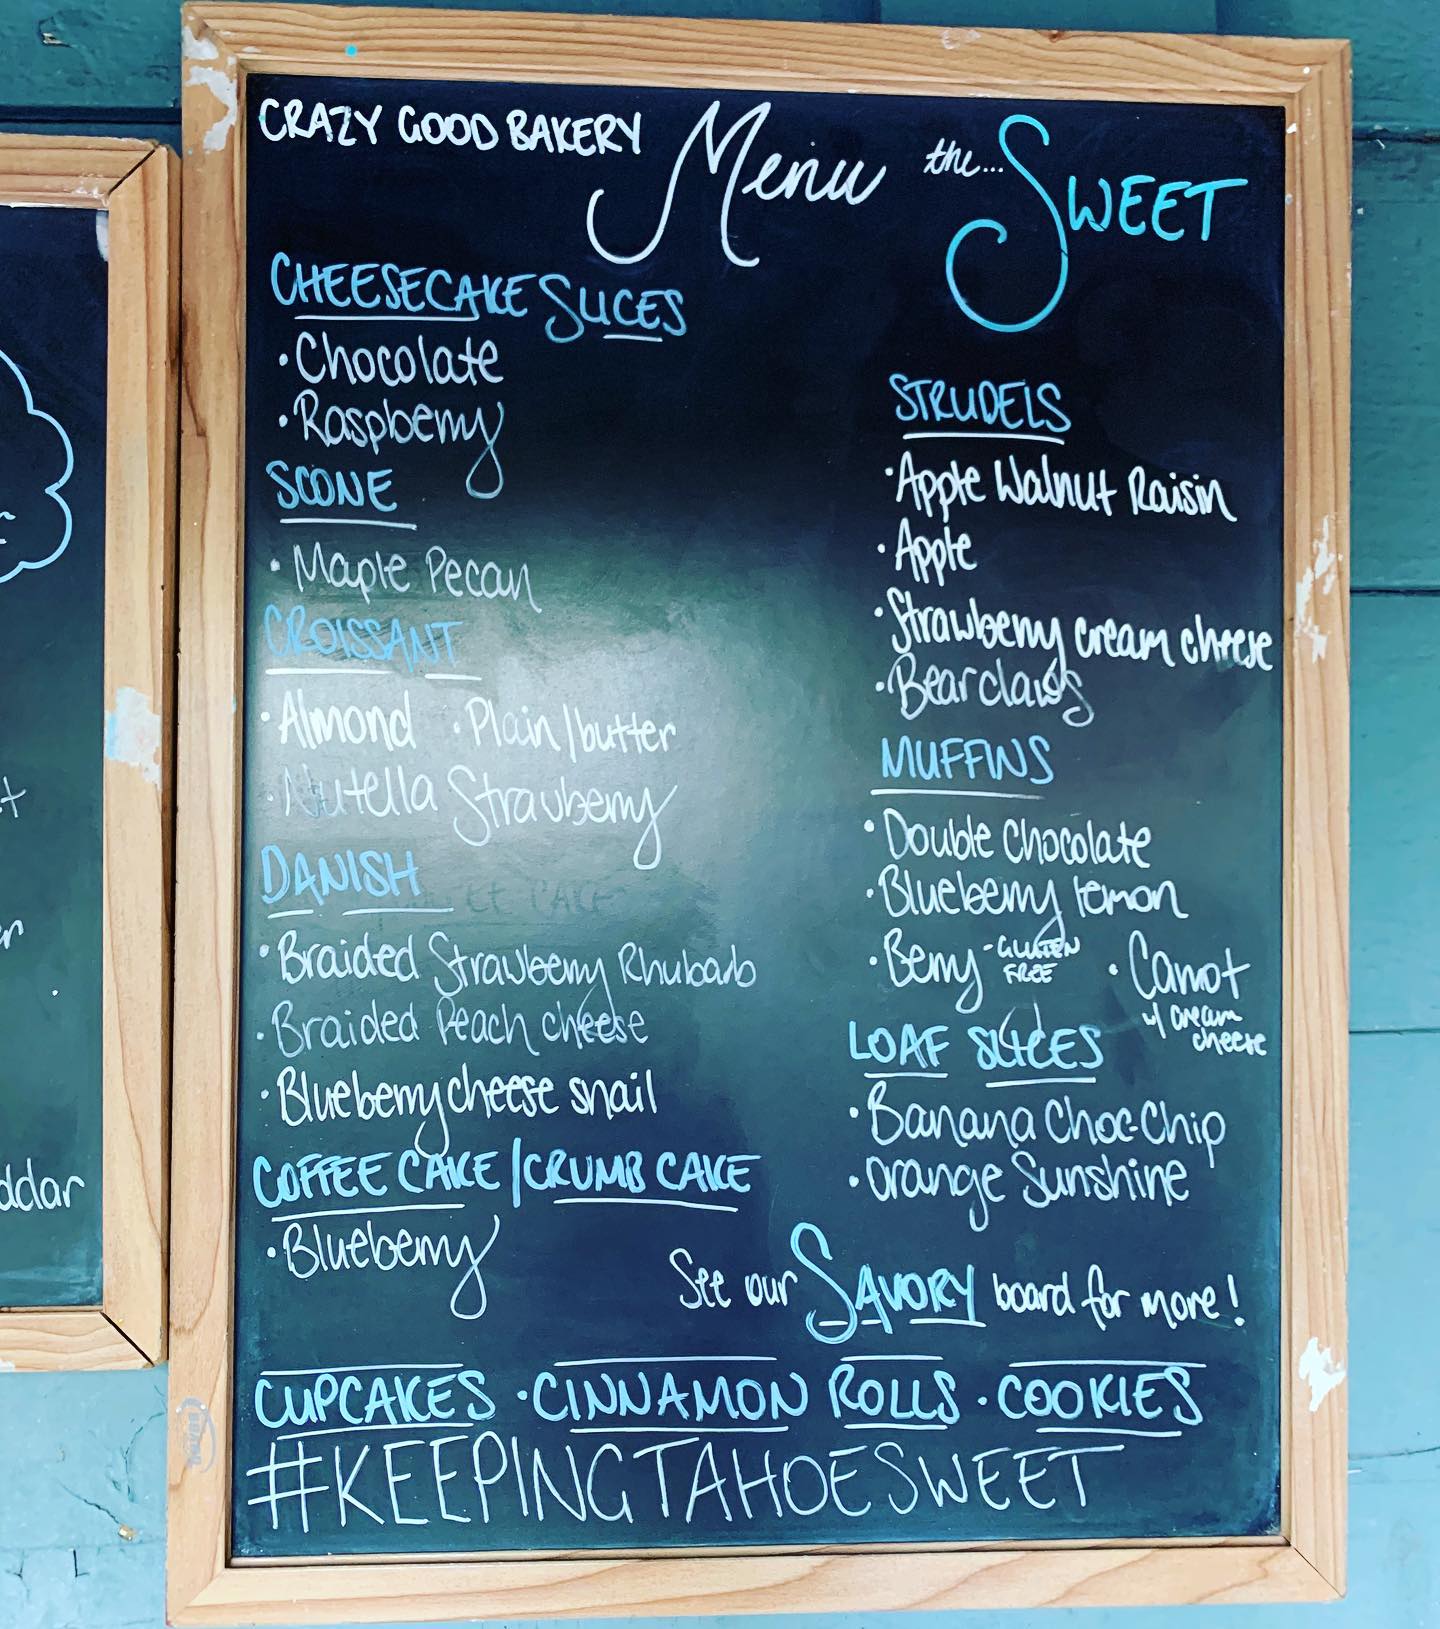 CRAZY GOOD BAKERY Menu the... SWEET
CHEESECAKE SLICES
• Chocolate
• Raspberry
SCONE
• Maple Pecan
CROISSANT
• Almond • Plain/butter
• Nutella Strawberry
DANISH
• Braided Strawberry Rhubarb
• Braided Peach cheese
• Blueberry cheese snail
COFFEE CAKE/CRUMB CAKE
• Blueberry
STRUDELS
• Apple Walnut Raisin
• Apple
• Strawberry cream cheese
• Bear claws
MUFFINS
• Double Chocolate
• Blueberry lemon
• Berry - GLUTEN FREE • Carrot
w/ cream
cheese
LOAF SLICES
• Banana Choc-Chip
• Orange Sunshine
See our SAVORY board for more!
CUPCAKES • CINNAMON ROLLS • COOKIES
#KEEPINGTAHOESWEET
ddar